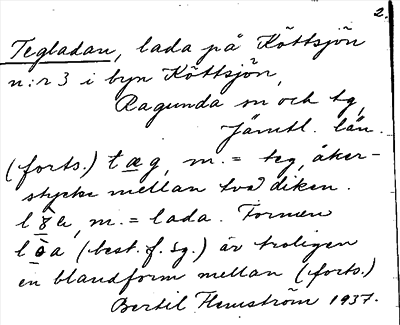 2.
Tegladan, lada på Köttsjön
n:r 3 i byn Köttsjön,
Ragunda sn och tg,
Jämtl. län.
(forts.) tæg, m. = teg, åker-
stycke mellan två diken.
m. = lada. Formen
(best. f. sg.) är troligen
en blandform mellan (forts.)
Bertil Flemström 1937.